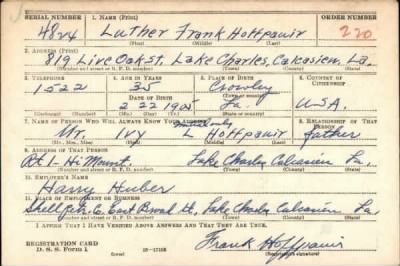 SERIAL NUMBER 1. NAME (Print) ORDER NUMBER
4824 Luther Frank Hoffpauir 220
(First) (Middle) (Last)
2. ADDRESS (Print)
819 Live Oak st. Lake Charles, Calcasieu, La.
(Number and street or R. F. D. number) (Town) (County) (State)
3. TELEPHONE 4. AGE IN YEARS 5. PLACE OF BIRTH 6. COUNTRY OF CITIZENSHIP
1522 35 Crowley
DATE OF BIRTH (Town or county)
2 22 1905 La. USA.
(Exchange) (Number) (Mo.) (Day) (Yr.) (State or country)
7. NAME OF PERSON WHO WILL ALWAYS KNOW YOUR ADDRESS 8. RELATIONSHIP OF THAT PERSON
Mr. Ivy L Hoffpauir father
(Mr., Mrs., Miss) (First) (Middle) (Last)
9. ADDRESS OF THAT PERSON
Rt 1- Hi Mount, Lake Charles Calcasieu La.
(Number and street or R. F. D. number) (Town) (County) (State)
10. EMPLOYER'S NAME
Harry Huber
11. PLACE OF EMPLOYMENT OR BUSINESS
Shell Pet. Co. East Broad st, Lake Charles Calcasieu La.
(Number and street or R. F. D. number) (Town) (County) (State)
I AFFIRM THAT I HAVE VERIFIED ABOVE ANSWERS AND THAT THEY ARE TRUE.
REGISTRATION CARD
D. S. S. Form 1 Frank Hoffpauir
(over) (Registrant's signature)